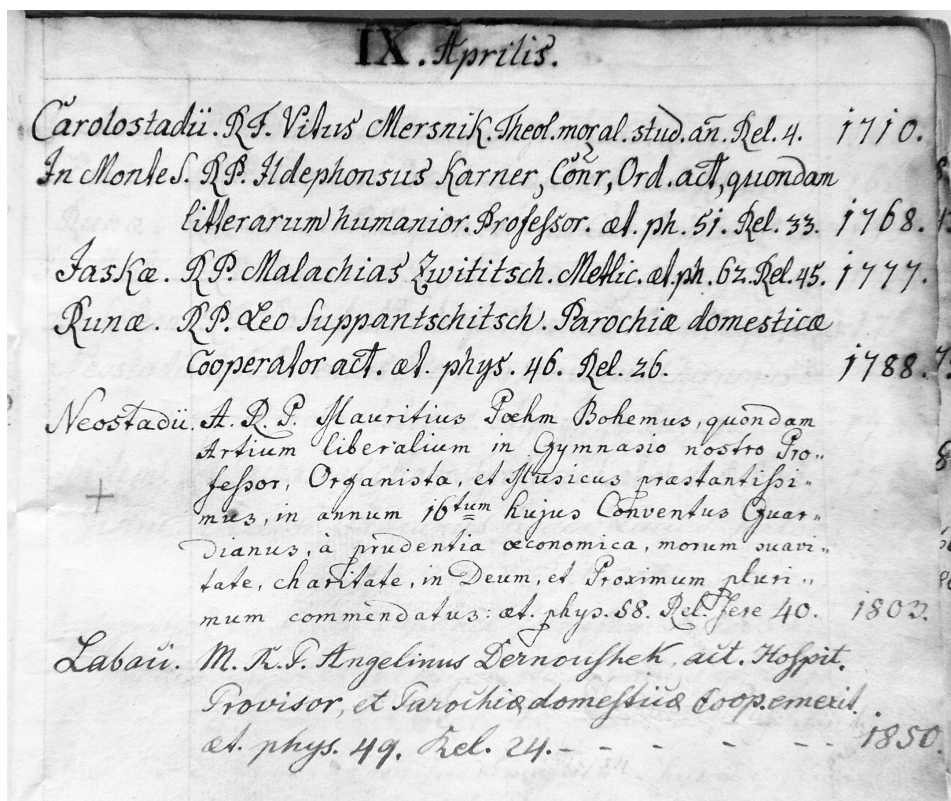 IX. Aprilis.
Carolostadii. R.F. Vitus Mersnik. Theol. moral. stud. an. Rel. 4. 1710.
In Monte S. RP. Ildephonsus Karner, Conr, Ord. act, quondam
litterarum humanior. Professor. æt. ph. 51. Rel. 33. 1768.
Jaskæ. RP. Malachias Zwititsch. Metlic. æt. ph. 62. Rel. 45. 1777.
Runæ. RP. Leo Suppantschitsch. Parochiæ domesticæ
Cooperator act. æt. phys. 46. Rel. 26. 1788.
Neostadii. A. R. P. Mauritius Poehm Bohemus, quondam
Artium liberalium in Gymnasio nostro Pro„
fessor, Organista, et Musicus præstantissi„
mus, in annum 16tum hujus Conventus Guar„
dianus, à prudentia œconomica, morum suavi„
tate, charitate, in Deum, et Proximum pluri„
mum commendatus: æt. phys. 58. Rel. fere 40. 1803.
Labaci. M. R. P. Angelinus Dernoushek, act. Hospit.
Provisor, et Parochiæ domesticæ Coop. emerit.
æt. phys. 49. Rel. 24. - - - - - - 1850.